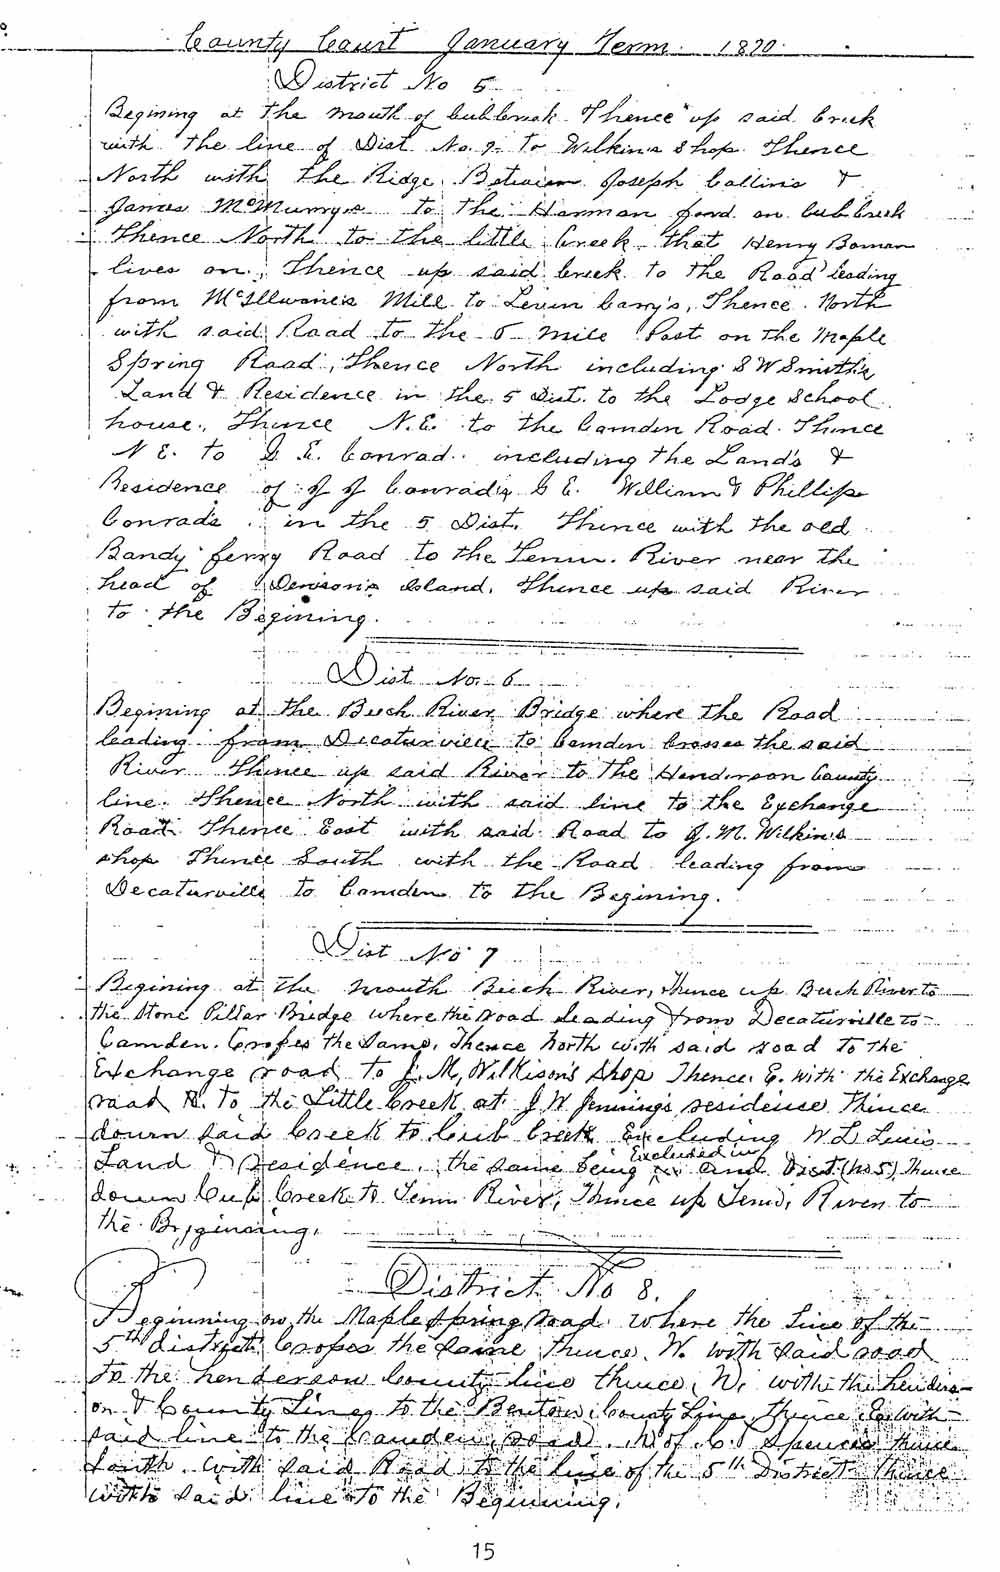 County Court January Term. 1870.
District No 5
Begining at the mouth of Cub creek Thence up said Creek
with the line of Dist No. 7 to Wilkins Shop Thence
North with the Ridge Between Joseph Collins &
James McMurrys to the Harman ford on Cub Creek
Thence North to the little Creek that Henry Boman
lives on, Thence up said Creek to the Road leading
from McIllwaines Mill to Levin Carry's, Thence North
with said Road to the 5 mile Post on the Maple
Spring Road, Thence North including S W Smith's
Land & Residence in the 5 Dist. to the Lodge School
house, Thence N.E. to the Camden Road. Thence
N E. to G. E. Conrad including the Land's &
Residence of J J Conrad's G E. William & Phillip
Conrads in the 5 Dist. Thence with the old
Bandy ferry Road to the Tenn. River near the
head of Denson's Island. Thence up said River
to the Begining.
Dist No. 6
Begining at the Beech River Bridge where the Road
leading from Decaturville to Camden Crosses the said
River Thence up said River to the Henderson County
line. Thence North with said line to the Exchange
Road. Thence East with said Road to J. M. Wilkins
shop Thence South with the Road leading from
Decaturville to Camden to the Begining.
Dist No 7
Begining at the mouth Beech River, Thence up Beech River to
the Stone Pillar Bridge where the road leading from Decaturville to
Camden. Crosses the Same. Thence North with said road to the
Exchange road to J. M, Wilkison's Shop Thence. E. With the Exchange
road to the Little Creek at J W Jennings residense Thence
down said Creek to Cub Creek Excluding W L Lewis
Land & residence. the same being Excluded in Dist (No 5), Thence
down Cub Creek to Tenn River, Thence up Tenn, River to
the Begginning.
District No 8.
Beginning on the Maple Spring road where the Line of the
5th district Crosses the Same thence W. with said road
to the henderson County line thence, N, with the henders-
on & County Line, to the Benton County Line, thence E. With
said line to the Camden road. N of C. Spences thence
South. With said Road to the line of the 5th District thence
with said line to the Beginning.
15